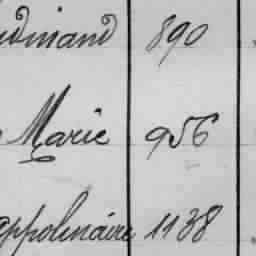 dinand 890
Marie 956
appolinaire 1138